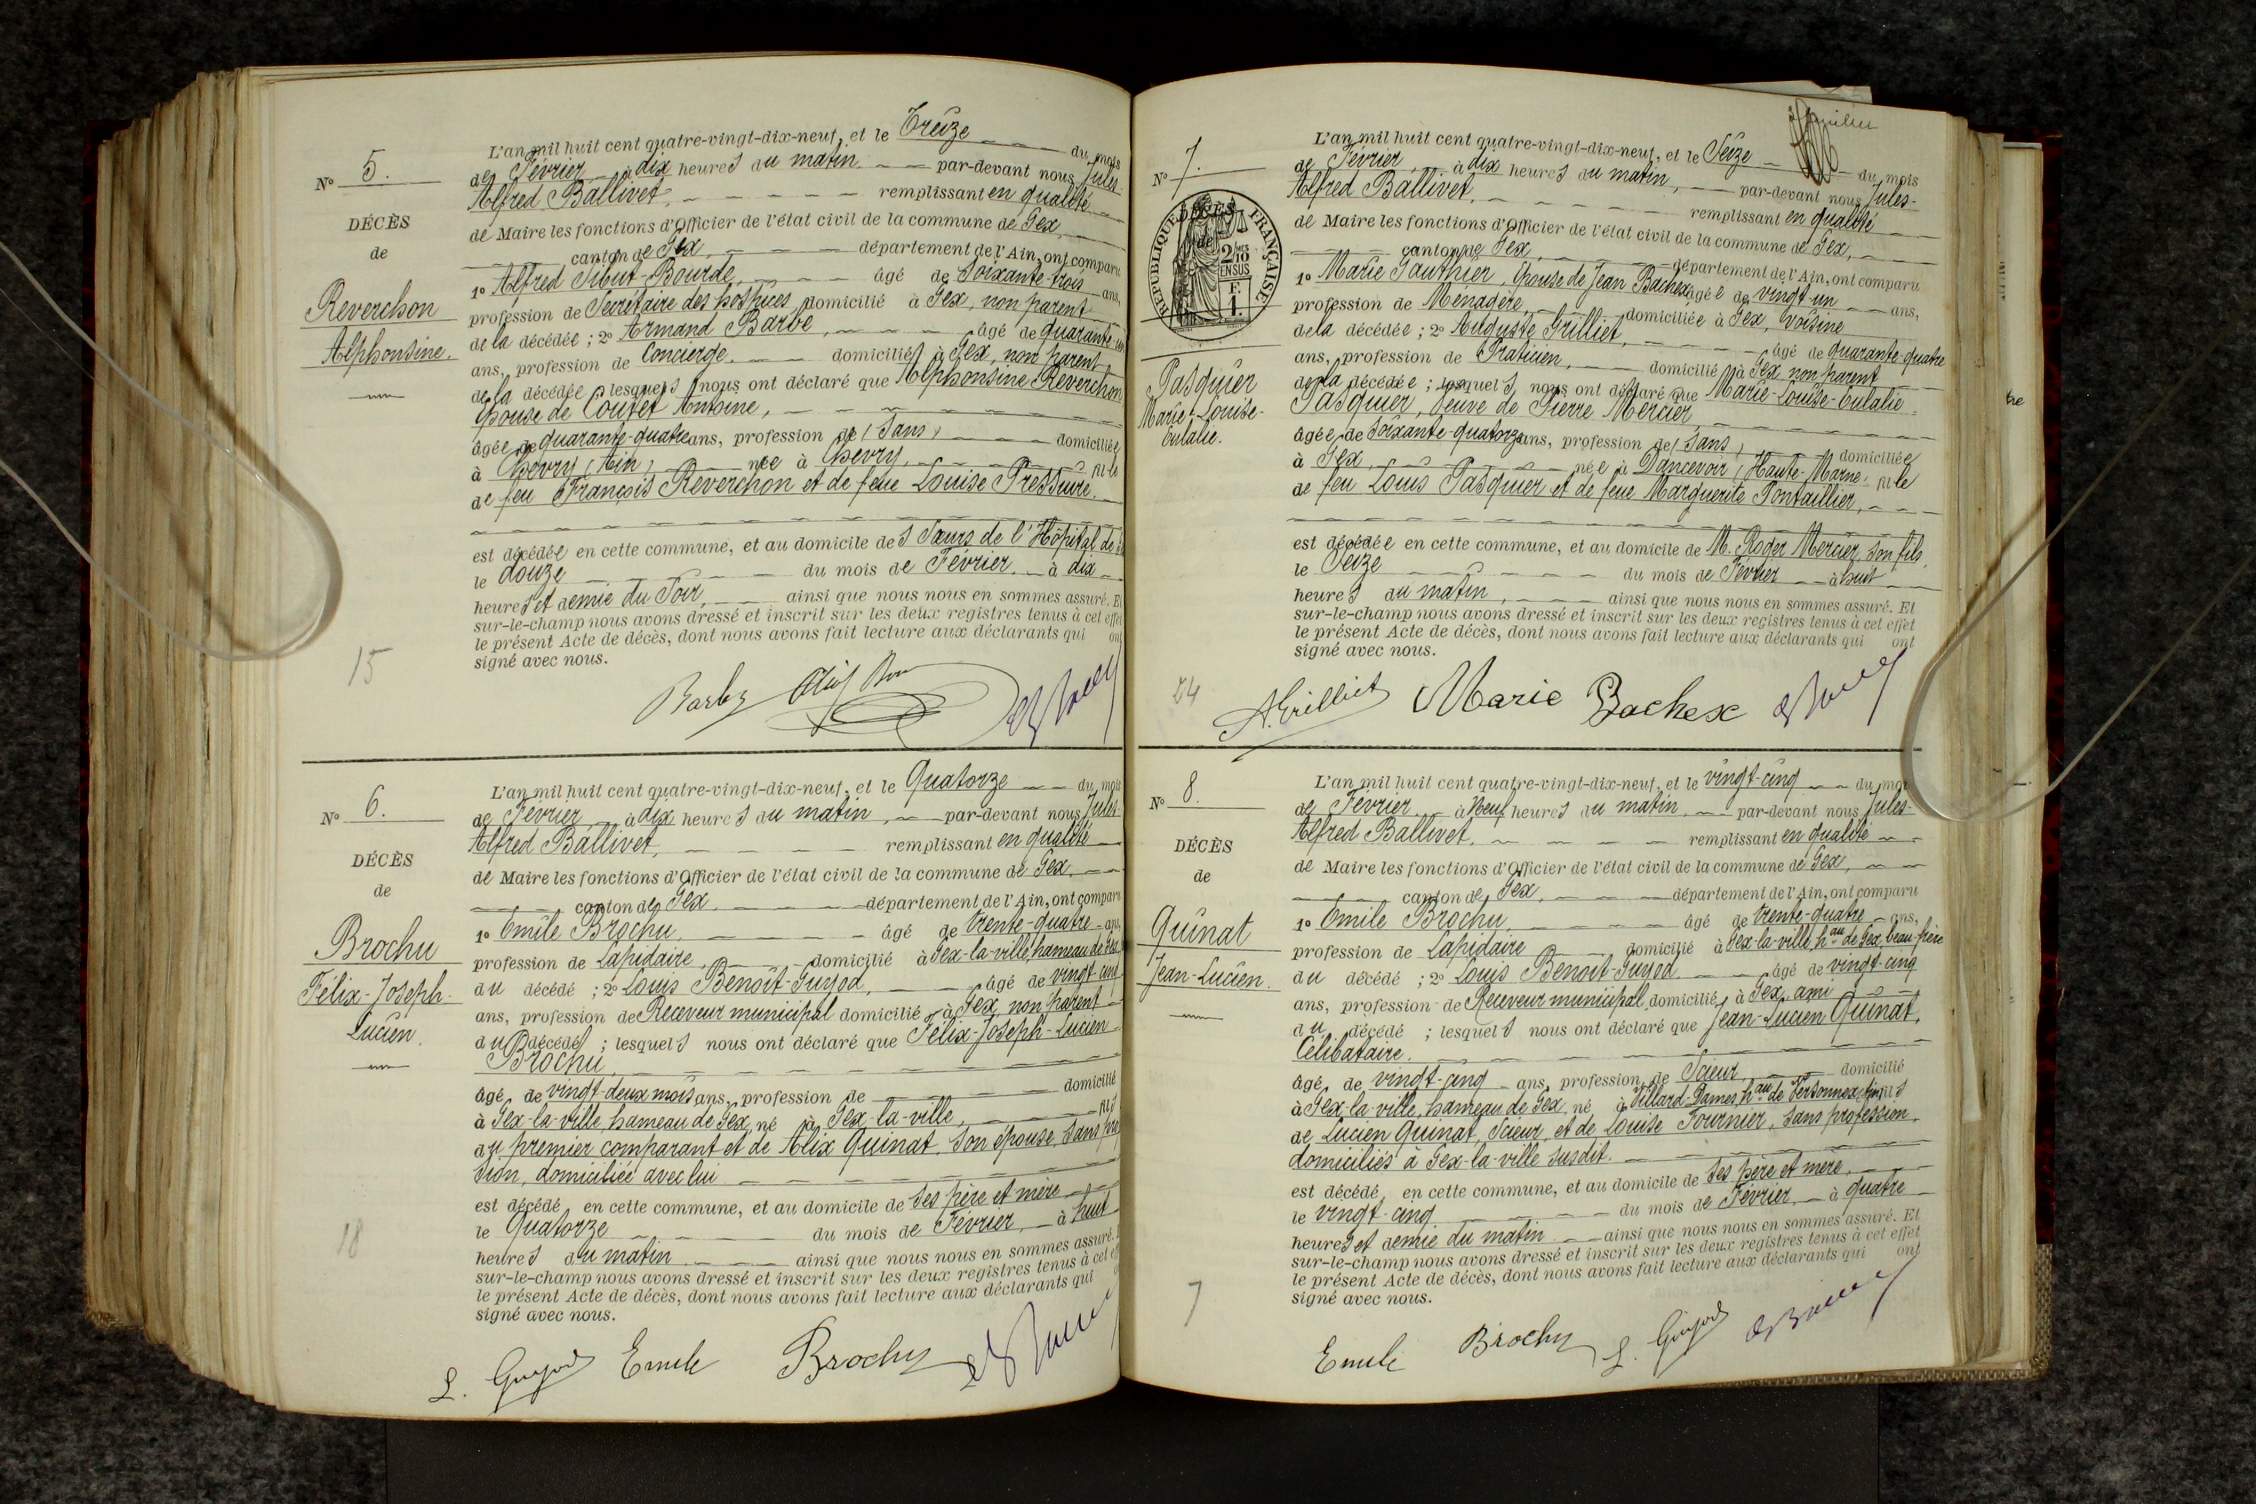 N° 5.
DÉCÈS
de
Reverchon
Alphonsine.
L'an mil huit cent quatre-vingt-dix-neuf, et le Treize du mois
de Février à dix heures du matin par-devant nous Jules-
Alfred Ballivet, remplissant en qualité
de Maire les fonctions d'Officier de l'état civil de la commune de Gex,
canton de Gex, département de l'Ain, ont comparu
1° Alfred Sibut-Bourde, âgé de Soixante-trois ans,
profession de Secrétaire des hospices, domicilié à Gex, non parent
de la décédée ; 2° Armand Barbe, âgé de quarante-
ans, profession de Concierge. domiciliés à Gex, non parent
de la décédée, lesquels nous ont déclaré que Alphonsine Reverchon
Epouse de Coutet Antoine,
âgée de quarante-quatre ans, profession de (Sans) domiciliée
à Chevry (Ain) née à Chevry, fille
de feu François Reverchon et de feue Louise Pressure.
est décédée en cette commune, et au domicile des Sœurs de l'Hôpital de
le douze du mois de Février. à dix
heures et demie du Soir, ainsi que nous nous en sommes assuré. Et
sur-le-champ nous avons dressé et inscrit sur les deux registres tenus à cet effet
le présent Acte de décès, dont nous avons fait lecture aux déclarants qui ont
signé avec nous.
15
Barbe
N° 6.
DÉCÈS
de
Brochu
Félix-Joseph-
Lucien.
L'an mil huit cent quatre-vingt-dix-neuf, et le Quatorze du mois
de Février à dix heures du matin, par-devant nous Jules-
Alfred Ballivet, remplissant en qualité
de Maire les fonctions d'Officier de l'état civil de la commune de Gex,
canton de Gex. département de l'Ain, ont comparu
1° Emile Brochu. âgé de trente-quatre ans,
profession de Lapidaire, domicilié à Gex-la-ville, hameau de Gex,
du décédé ; 2° Louis Benoît-Guyod, âgé de vingt-cinq
ans, profession de Receveur municipal domicilié à Gex, non parent
du décédé ; lesquels nous ont déclaré que Félix-Joseph-Lucien
Brochu,
âgé de vingt-deux mois ans, profession de domicilié
à Gex-la-ville, hameau de Gex, né à Gex-la-ville, fils
du premier comparant et de Alix Quinat, Son épouse, Sans profes
sion, domiciliée avec lui
est décédé en cette commune, et au domicile de Ses père et mère
le Quatorze du mois de Février, à huit
heures du matin ainsi que nous nous en sommes assuré.
sur-le-champ nous avons dressé et inscrit sur les deux registres tenus à cet
le présent Acte de décès, dont nous avons fait lecture aux déclarants qui
signé avec nous.
18
L. Guyod Emile Brochu
N° 7.
DÉCÈS
de
RÉPUBLIQUE FRANÇAISE
2/10
EN SUS
F.
1.
Pasquier
Marie-Louise-
Eulalie.
L'an mil huit cent quatre-vingt-dix-neuf, et le Seize du mois
de Février, à dix heures du matin, par-devant nous Jules-
Alfred Ballivet, remplissant en qualité
de Maire les fonctions d'Officier de l'état civil de la commune de Gex,
canton de Gex, département de l'Ain, ont comparu
1° Marie Gauthier, Epouse de Jean Bachex, âgée de vingt-un ans,
profession de Ménagère, domiciliée à Gex, voisine
de la décédée ; 2° Auguste Grilliet, âgé de quarante-quatre
ans, profession de Praticien, domicilié à Gex, non parent
de la décédée ; lesquels, nous ont déclaré que Marie-Louise-Eulalie
Pasquier, Veuve de Pierre Mercier
âgée de Soixante-quatorze ans, profession de (Sans) domiciliée
à Gex, née à Dancevoir (Haute-Marne) fille
de feu Louis Pasquier et de feue Marguerite Pontaillier,
est décédée en cette commune, et au domicile de M. Roger Mercier, son fils,
le Seize du mois de Février à huit
heures du matin, ainsi que nous nous en sommes assuré. Et
sur-le-champ nous avons dressé et inscrit sur les deux registres tenus à cet effet
le présent Acte de décès, dont nous avons fait lecture aux déclarants qui ont
signé avec nous.
A. Grilliet Marie Bachex
N° 8.
DÉCÈS
de
Quinat
Jean-Lucien.
L'an mil huit cent quatre-vingt-dix-neuf, et le vingt-cinq du mois
de Février à Neuf heures du matin, par-devant nous Jules-
Alfred Ballivet, remplissant en qualité
de Maire les fonctions d'Officier de l'état civil de la commune de Gex,
canton de Gex, département de l'Ain, ont comparu
1° Emile Brochu, âgé de trente-quatre ans,
profession de Lapidaire domicilié à Gex-la-ville, hau de Gex, beau-frère
du décédé ; 2° Louis Benoît-Guyod, âgé de vingt-cinq
ans, profession de Receveur municipal, domicilié à Gex, ami
du décédé ; lesquels nous ont déclaré que Jean-Lucien Quinat,
Célibataire.
âgé de vingt-cinq ans, profession de Scieur domicilié
à Gex-la-ville, hameau de Gex, né à Villard-Dames, hau de Versonnex, (Ain) fils
de Lucien Quinat, Scieur, et de Louise Fournier, Sans profession,
domiciliés à Gex-la-ville susdit.
est décédé, en cette commune, et au domicile de Ses père et mère,
le vingt-cinq du mois de Février, à quatre
heures et demie du matin ainsi que nous nous en sommes assuré. Et
sur-le-champ nous avons dressé et inscrit sur les deux registres tenus à cet effet
le présent Acte de décès, dont nous avons fait lecture aux déclarants qui ont
signé avec nous.
7
Emile Brochu L. Guyod
tre